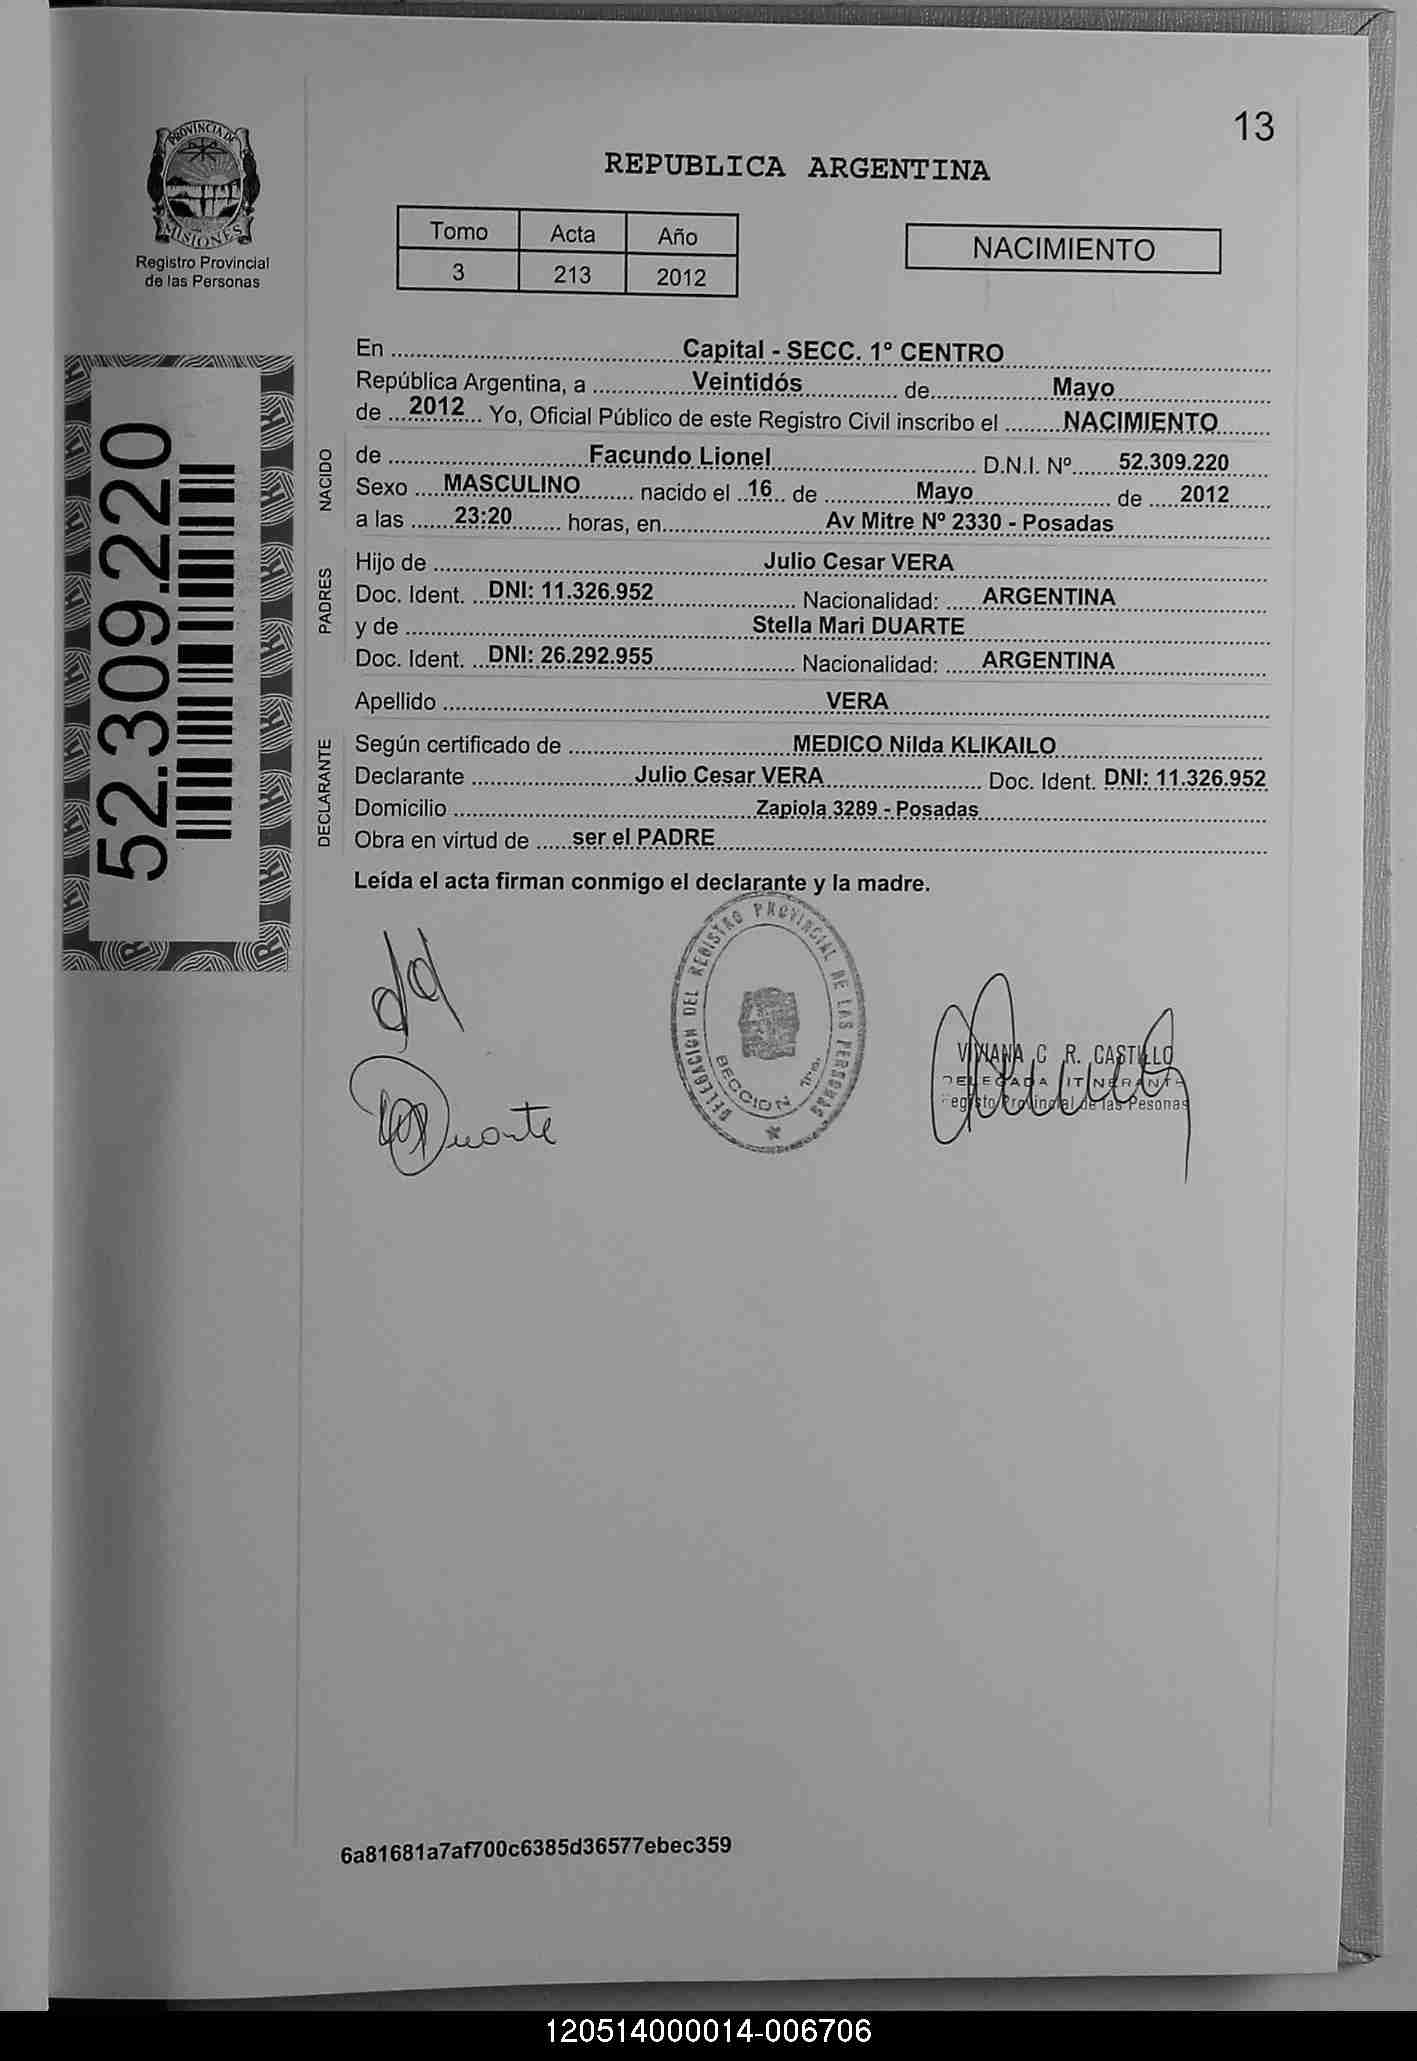 13
PROVINCIA DE
MISIONES
Registro Provincial
de las Personas
REPUBLICA ARGENTINA
Tomo Acta Año
3 213 2012
NACIMIENTO
52.309.220
En Capital - SECC. 1° CENTRO
República Argentina, a Veintidós de Mayo
de 2012 Yo, Oficial Público de este Registro Civil inscribo el NACIMIENTO
NACIDO
de Facundo Lionel D.N.I. Nº 52.309.220
Sexo MASCULINO nacido el 16 de Mayo de 2012
a las 23:20 horas, en Av Mitre Nº 2330 - Posadas
PADRES
Hijo de Julio Cesar VERA
Doc. Ident. DNI: 11.326.952 Nacionalidad: ARGENTINA
y de Stella Mari DUARTE
Doc. Ident. DNI: 26.292.955 Nacionalidad: ARGENTINA
Apellido VERA
DECLARANTE
Según certificado de MEDICO Nilda KLIKAILO
Declarante Julio Cesar VERA Doc. Ident. DNI: 11.326.952
Domicilio Zapiola 3289 - Posadas
Obra en virtud de ser el PADRE
Leída el acta firman conmigo el declarante y la madre.
DELEGACION DEL REGISTRO PROVINCIAL DE LAS PERSONAS
SECCION 1ra.
Duarte
VIVIANA C. R. CASTILLO
DELEGADA ITINERANTE
Registo Provincial de las Pesonas
6a81681a7af700c6385d36577ebec359
120514000014-006706